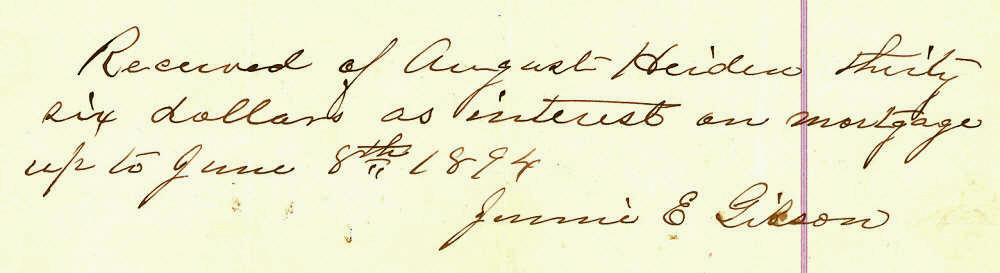 Received of August Heiden thirty
six dollars as interest on mortgage
up to June 8th 1894
Jennie E Gibson